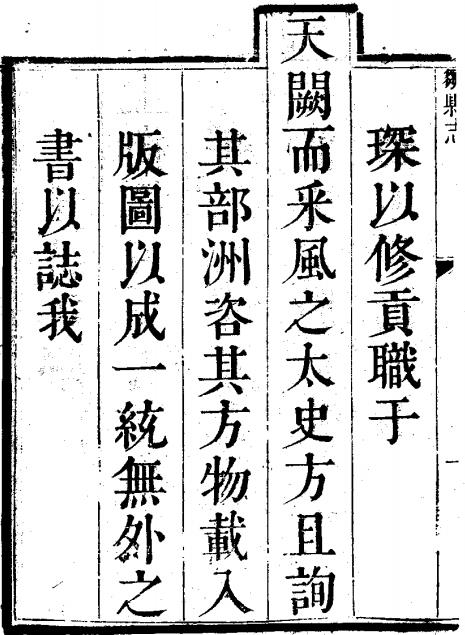 鄒縣志
琛以修貢職于
天闕而采風之太史方且詢
其部洲咨其方物載入
版圖以成一統無外之
書以誌我